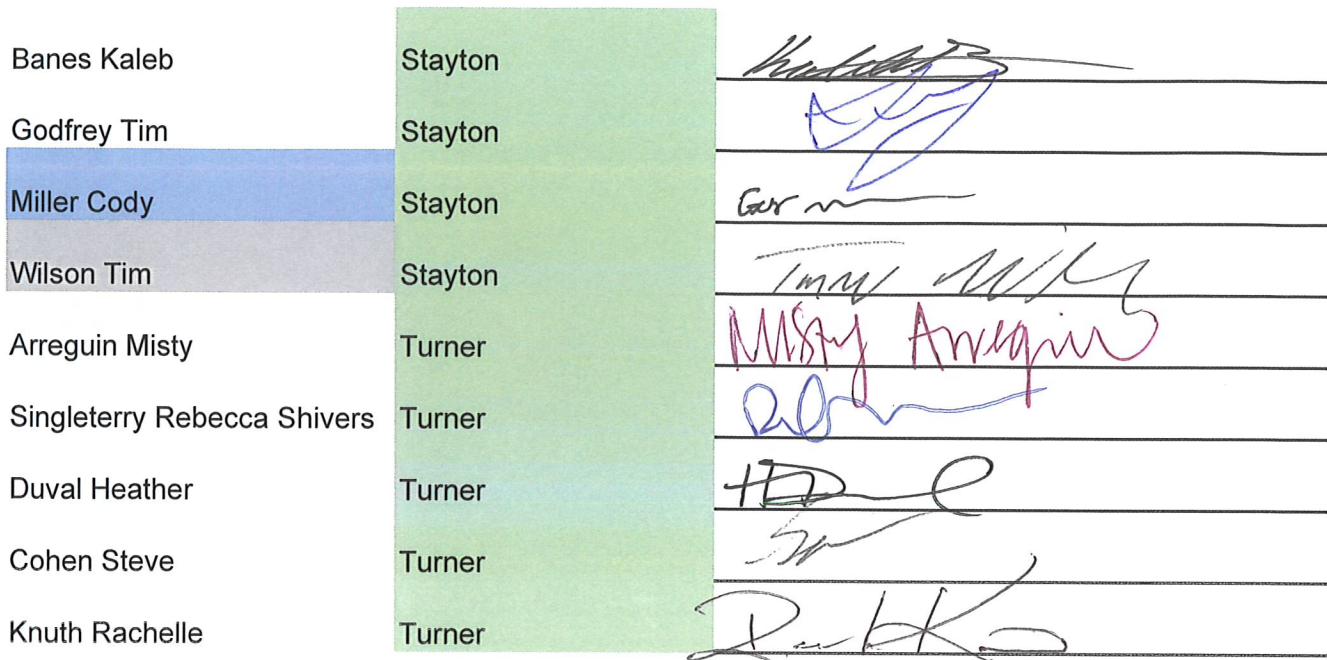 Banes Kaleb Stayton
Godfrey Tim Stayton
Miller Cody Stayton
Wilson Tim Stayton
Arreguin Misty Turner Misty Arreguin
Singleterry Rebecca Shivers Turner
Duval Heather Turner
Cohen Steve Turner
Knuth Rachelle Turner